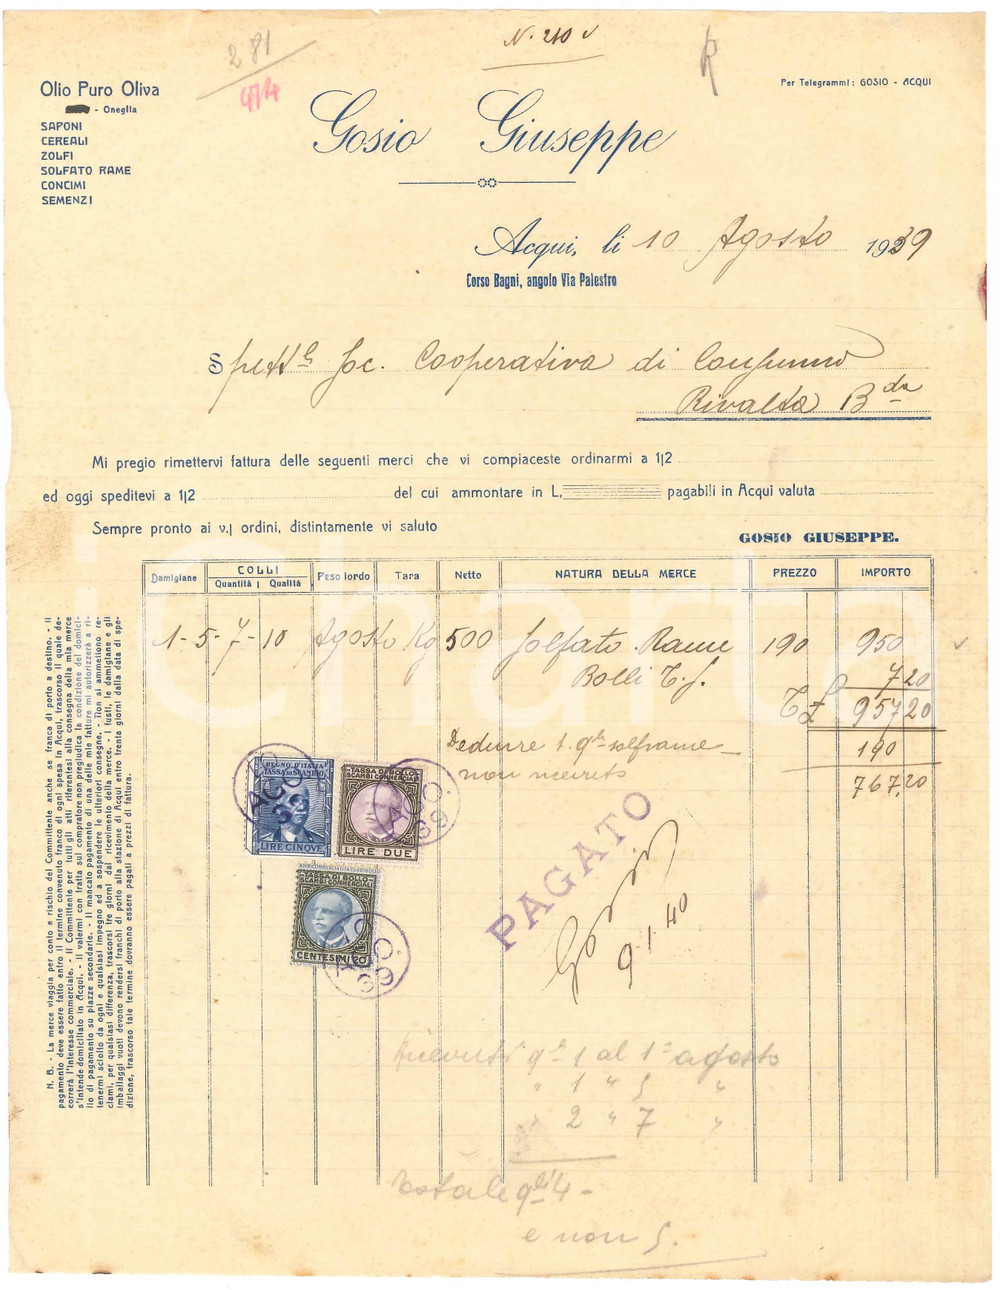 N. 210
281
474
Olio Puro Oliva
- Oneglia
SAPONI
CEREALI
ZOLFI
SOLFATO RAME
CONCIMI
SEMENZI
Per Telegrammi: GOSIO - ACQUI
Gosio Giuseppe
Acqui, li 10 Agosto 1939
Corso Bagni, angolo Via Palestro
Spett.le Soc. Cooperativa di Consumo
Rivalta B.da
Mi pregio rimettervi fattura delle seguenti merci che vi compiaceste ordinarmi a 1|2
ed oggi speditevi a 1|2 del cui ammontare in L, pagabili in Acqui valuta
Sempre pronto ai v.| ordini, distintamente vi saluto
GOSIO GIUSEPPE.
Damigiane COLLI Quantità Qualità Peso lordo Tara Netto NATURA DELLA MERCE PREZZO IMPORTO
1-5-7-10 Agosto Kg 500 Solfato Rame 190 950
Bolli T.S. 7 20
T £ 957,20
Dedurre 1. q.le solframe 190
non ricevuto 767,20
REGNO D'ITALIA
TASSA DI SCAMBIO
LIRE CINQVE
TASSA DI BOLLO
SCAMBI COMMERCIALI
LIRE DUE
TASSA DI BOLLO
SCAMBI COMMERCIALI
CENTESIMI 20
AGO. 39
AGO. 39
AGO. 39
PAGATO
Gosio
9.1.40
Ricevuti q.li 1 al 1° agosto
" 1 " 5 "
" 2 " 7 "
Totale q.li 4 -
e non 5.
N. B. - La merce viaggia per conto e rischio del Committente anche se franca di porto a destino. - Il
pagamento deve essere fatto entro il termine convenuto franco di ogni spesa in Acqui, trascorso il quale de-
correrà l'interesse commerciale. - Il Committente per tutti gli atti riferentesi alla consegna della mia merce
s'intende domiciliato in Acqui. - Il valermi con tratta sul compratore non pregiudica la condizione del domici-
lio di pagamento su piazze secondarie. - Il mancato pagamento di una delle mie fatture mi autorizzerà a ri-
tenermi sciolto da ogni e qualsiasi impegno ed a sospendere le ulteriori consegne. - Non si ammettono re-
clami, per qualsiasi differenza, trascorsi tre giorni dal ricevimento della merce. - I fusti, le damigiane e gli
imballaggi vuoti devono rendersi franchi di porto alla stazione di Acqui entro trenta giorni dalla data di spe-
dizione, trascorso tale termine dovranno essere pagati a prezzi di fattura.